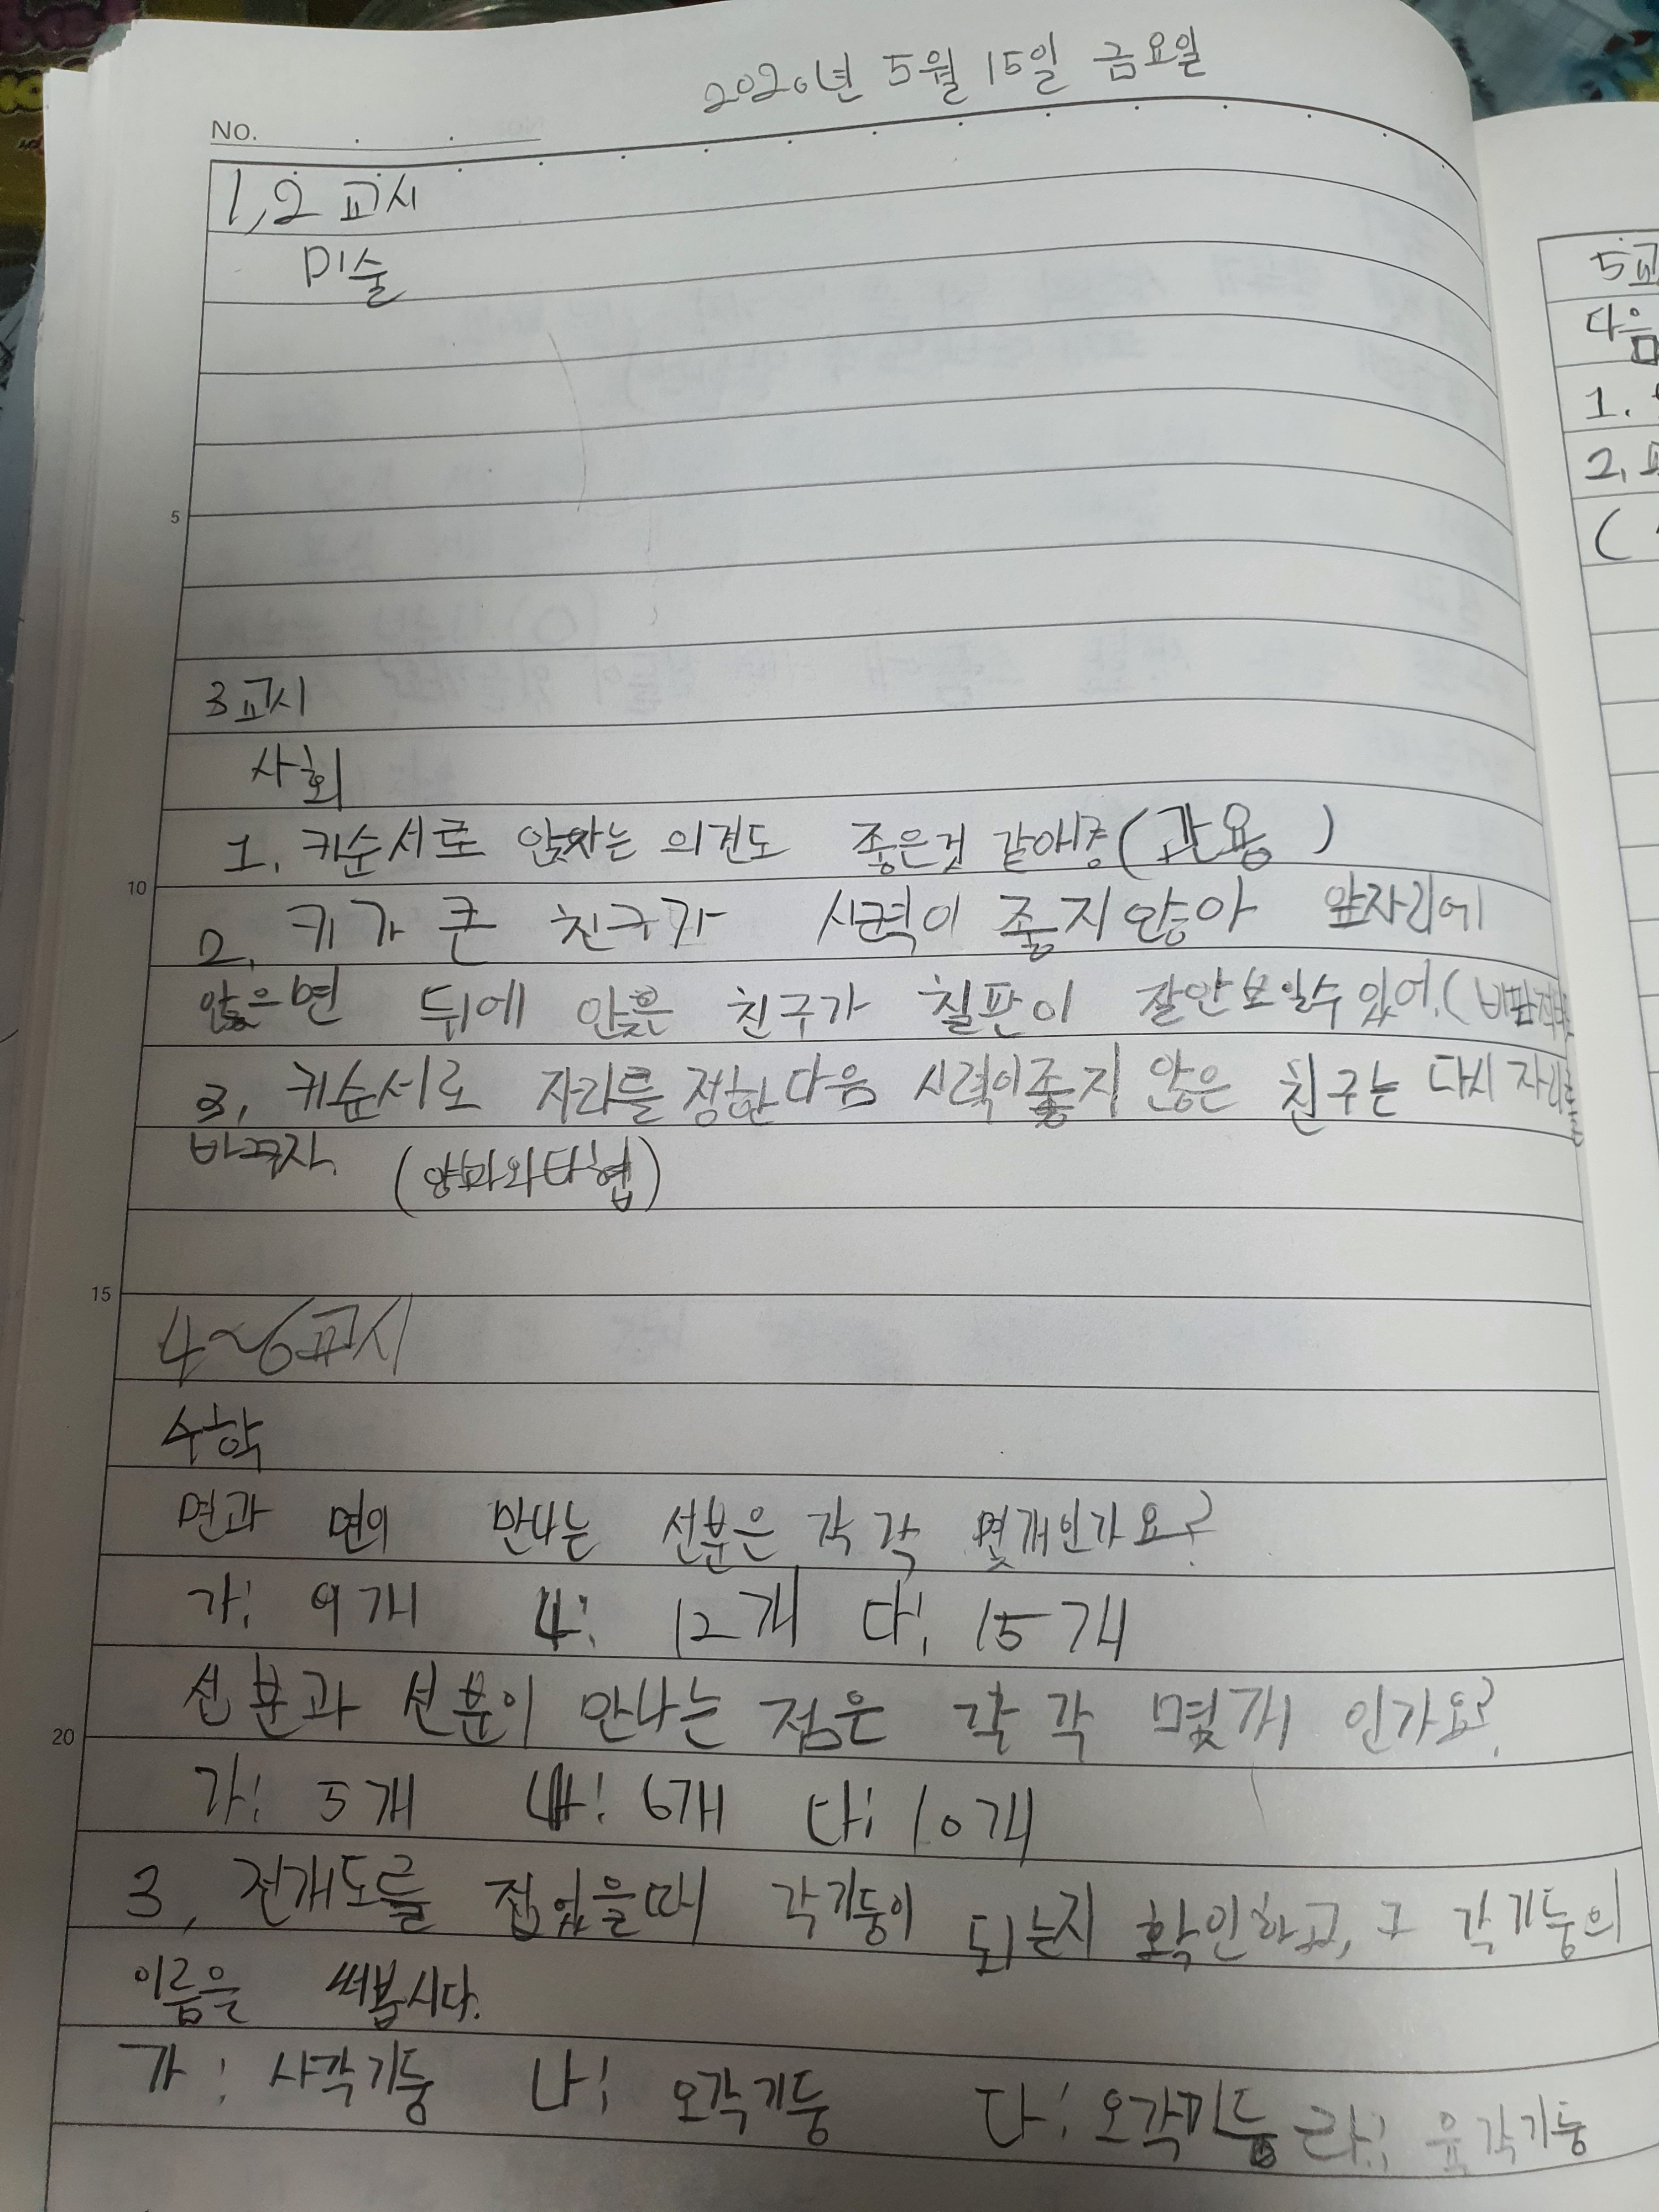 2020년 5월 15일 금요일
No.
1,2 교시
미술
5
3교시
사회
1. 키순서로 앉자는 의견도 좋은것 같아. (관용 )
10
2. 키가 큰 친구가 시력이 좋지 않아 앞자리에
앉으면 뒤에 앉은 친구가 칠판이 잘안보일수있어.(비판적
3. 키순서로 자리를 정한다음 시력이좋지 않은 친구는 다시 자리를
바꾸자. (양보와타협)
15
4~6교시
수학
면과 면이 만나는 선분은 각각 몇개인가요?
가: 9개 나: 12개 다: 15개
선분과 선분이 만나는 점은 각각 몇개 인가요?
20
가: 5개 나: 6개 다: 10개
3, 전개도를 접었을때 각기둥이 되는지 확인하고, 그 각기둥의
이름을 써봅시다.
가: 사각기둥 나: 오각기둥 다: 오각기둥 라: 육각기둥
5교
다음
1.
2.
(